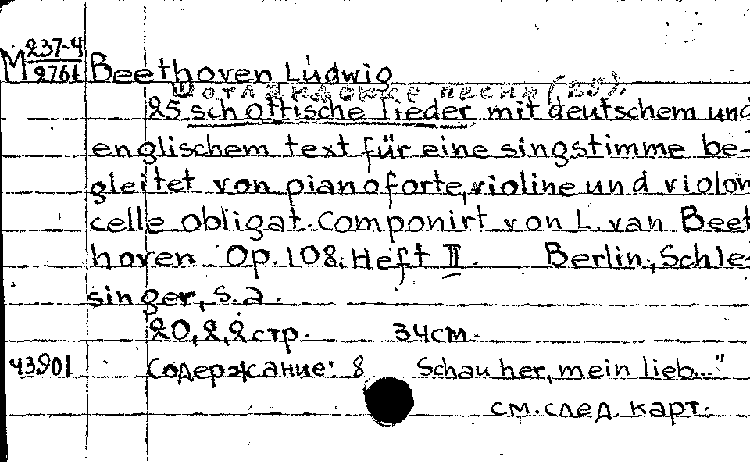 М 237-4
2761
Beethoven Ludwig
Шотландские песни (25).
25 schottische lieder mit deutschem und
englischem text für eine singstimme be-
gleitet von pianoforte, violine und violon
celle obligat. Componirt von L. van Beet
hoven Op. 108. Heft II. Berlin, Schle-
singer, s.a.
20, 2, 2 стр. 34см.
43901 Содержание: 8 Schau her, mein lieb..."
см. след. карт.